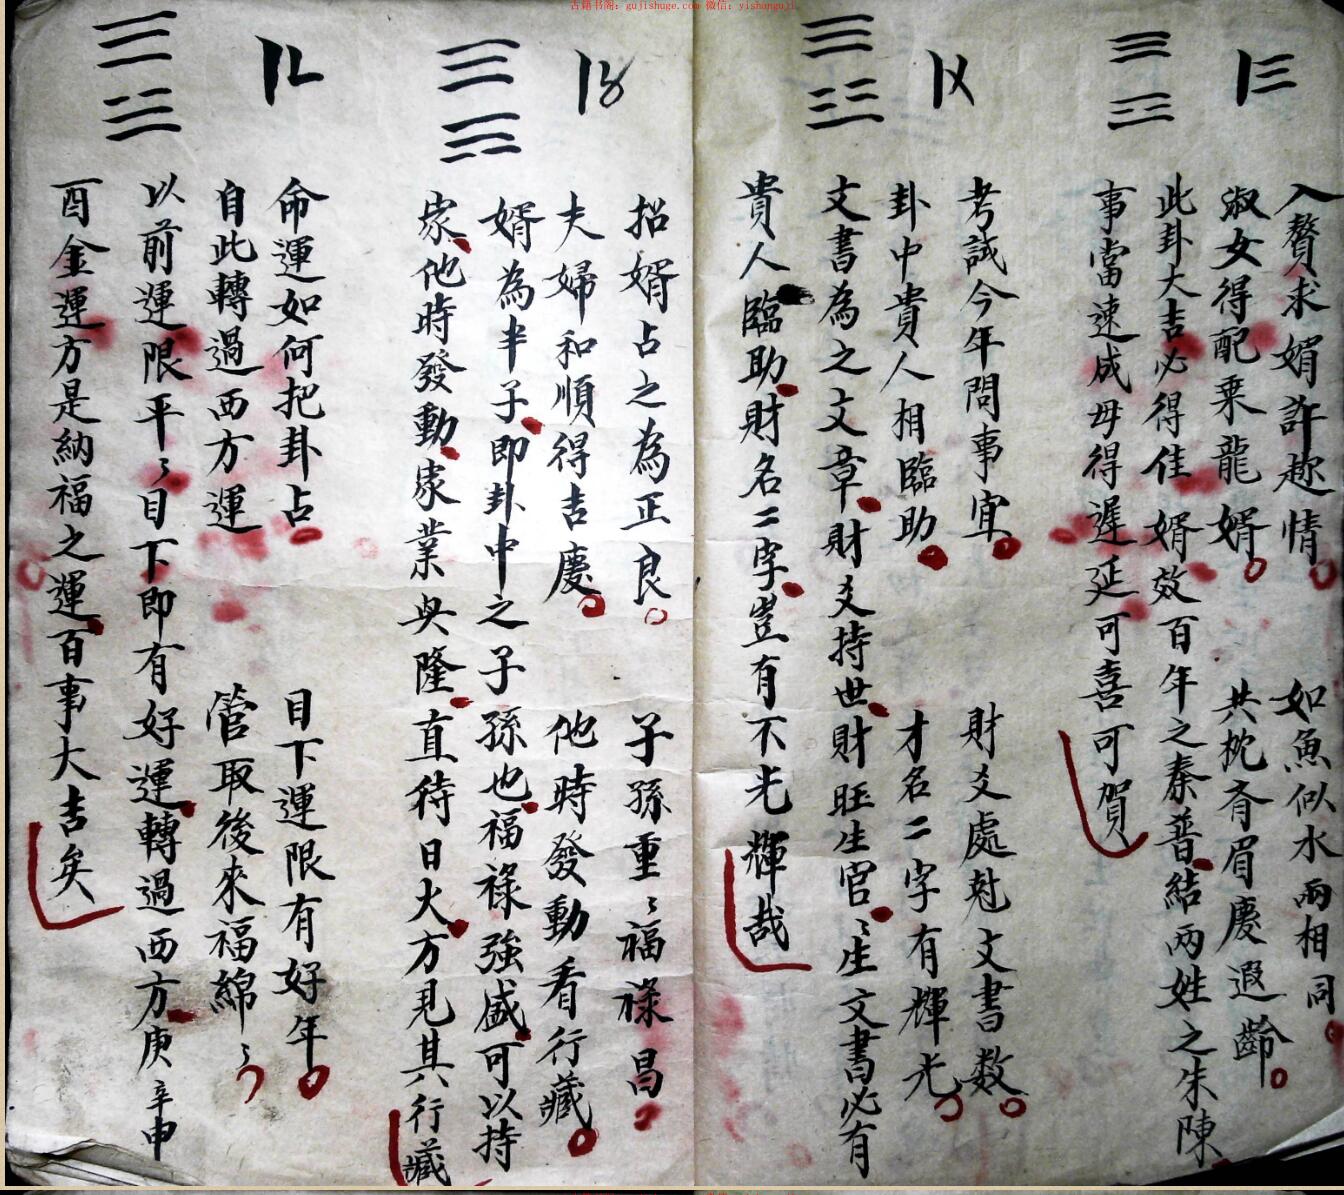 古籍书阁：gujishuge.com 微信：yishanguji
〡三
入贅求婿許趂情 如魚似水兩相同
淑女得配乗龍婿 共枕斉眉慶遐齡
此卦大吉必得佳婿效百年之秦晋結兩姓之朱陳
事當速成毋得遲延可喜可賀
〡〤
考試今年問事宜 財爻處尅文書数
卦中貴人相臨助 才名二字有輝光
文書為之文章財爻持世財旺生官〻生文書必有
貴人臨助財名二字豈有不光輝哉
〡〥
招婿占之為正良 子孫重〻福祿昌
夫婦和順得吉慶 他時發動看行藏
婿為半子即卦中之子孫也福祿強盛可以持
家他時發動家業興隆直待日久方見其行藏
〡〦
命運如何把卦占 目下運限有好年
自此轉過西方運 管取後來福綿〻
以前運限平〻目下即有好運轉過西方庚辛申
酉金運方是納福之運百事大吉矣